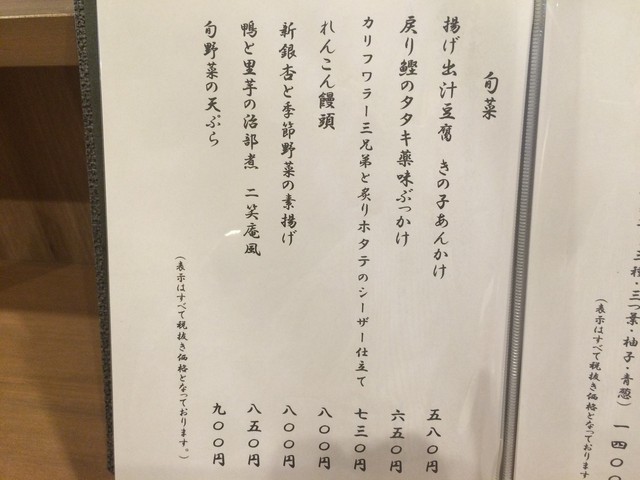 三種・三つ葉・柚子・青葱) 一四〇〇
(表示はすべて税抜き価格となっております
旬菜
揚げ出汁豆腐 きの子あんかけ 五八〇円
戻り鰹のタタキ薬味ぶっかけ 六五〇円
カリフワラー三兄弟と炙りホタテのシーザー仕立て 七三〇円
れんこん饅頭 八〇〇円
新銀杏と季節野菜の素揚げ 八〇〇円
鴨と里芋の治部煮 二笑庵風 八五〇円
旬野菜の天ぷら 九〇〇円
(表示はすべて税抜き価格となっております。)